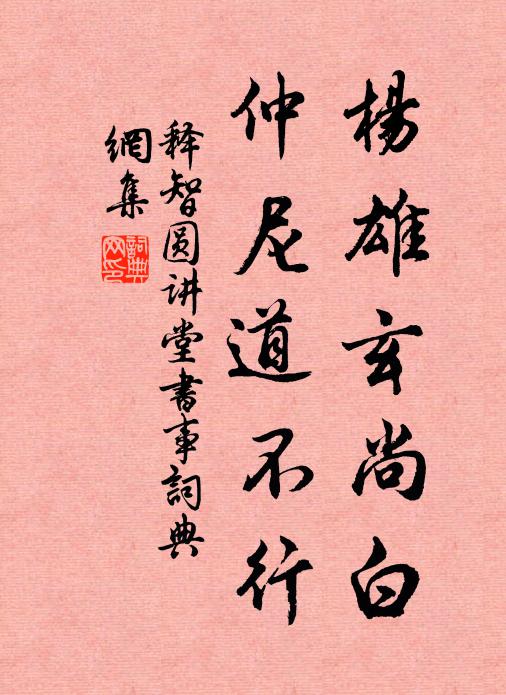 楊雄玄尚白
仲尼道不行
释智圆讲堂書事詞典
網集
詞典网印